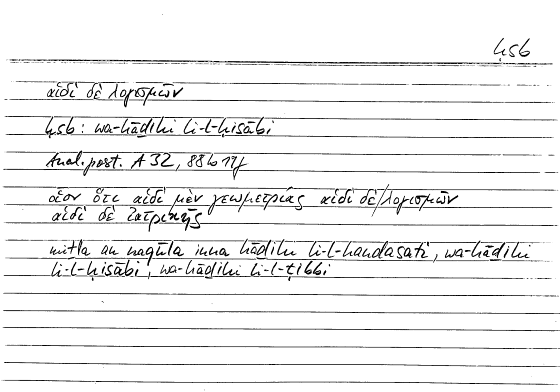 ḥsb
αἱδὶ δὲ λογισμῶν
ḥsb : wa-hāḏihi li-l-ḥisābi
Anal. post. A 32, 88b 11f
οἷον ὅτι αἱδὶ μὲν γεωμετρίας αἱδὶ δὲ/λογισμῶν
αἱδὶ δὲ ἰατρικῆς
miṯla an naqūla inna hāḏihi li-l-handasati, wa-hāḏihi
li-l-ḥisābi, wa-hāḏihi li-l-ṭibbi